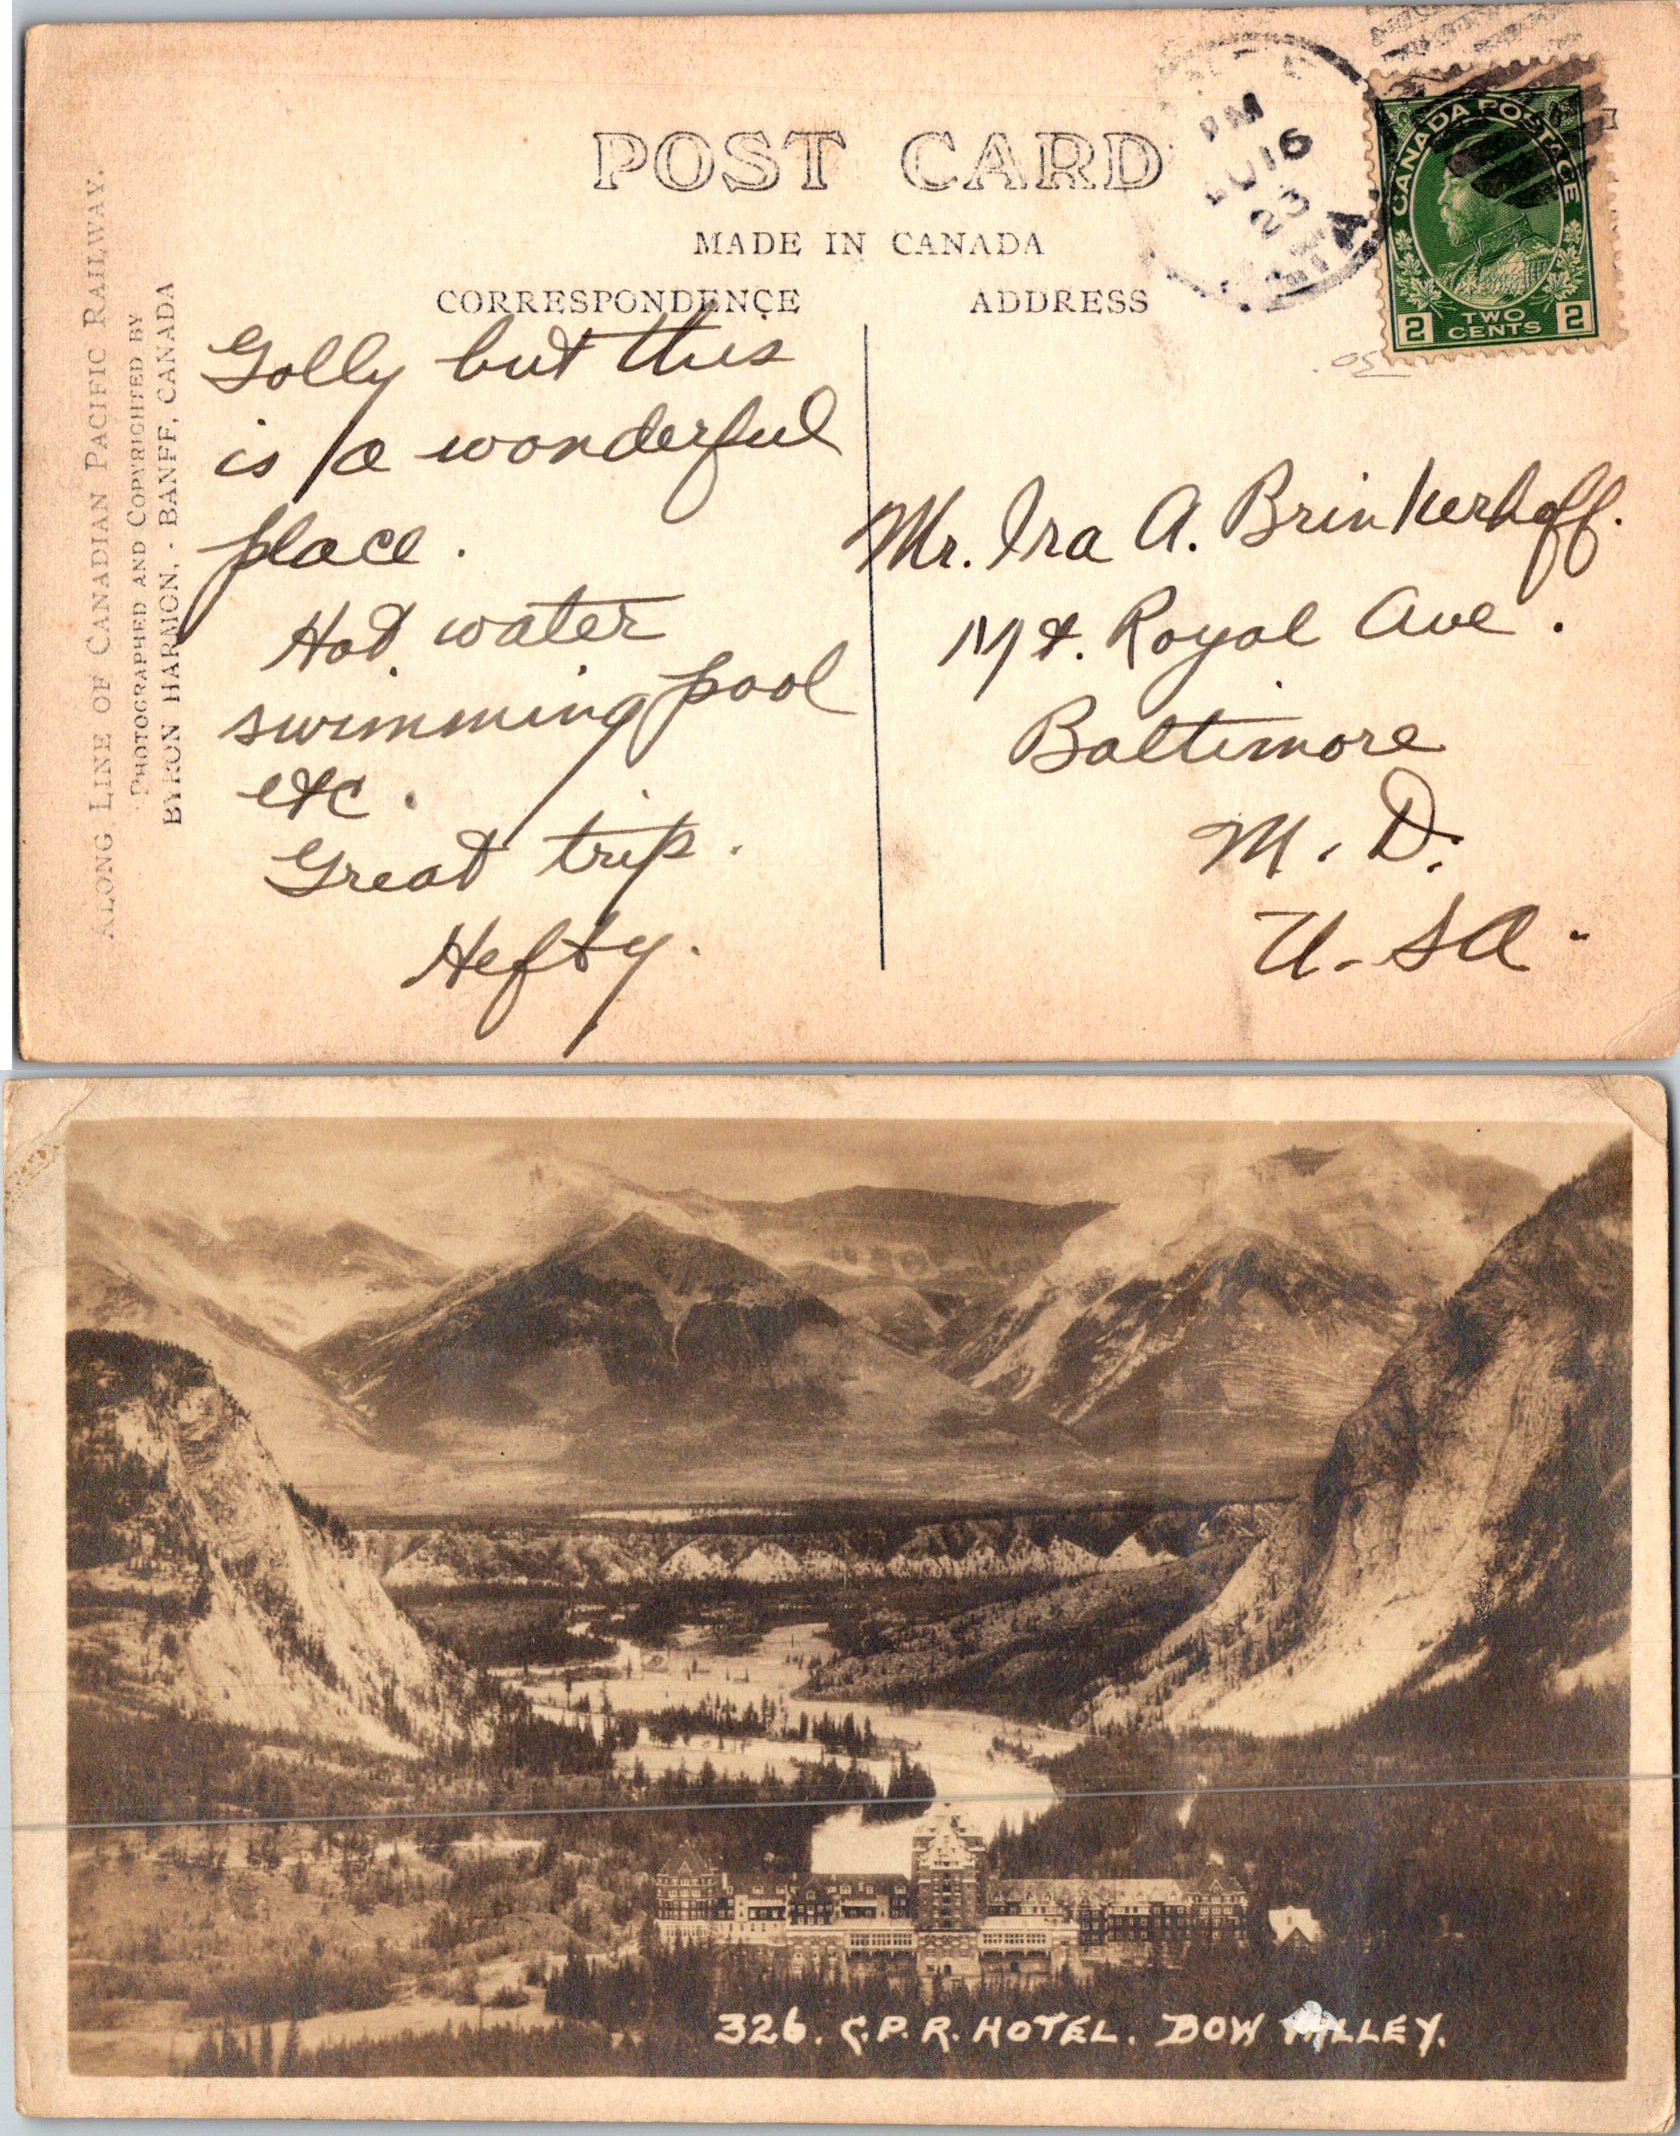 POST CARD
MADE IN CANADA
CORRESPONDENCE
ADDRESS
PM
16
23
CANADA POSTAGE
2 TWO CENTS 2
ALONG LINE OF CANADIAN PACIFIC RAILWAY.
PHOTOGRAPHED AND COPYRIGHTED BY
BYRON HARMON, - BANFF, CANADA
Golly but this
is a wonderful
place.
Hot water
swimming pool
etc.
Great trip.
Hefty.
Mr. Ira A. Brinkerhoff.
Mt. Royal Ave.
Baltimore
M. D.
U-SA.
326. C.P.R. HOTEL. BOW VALLEY.